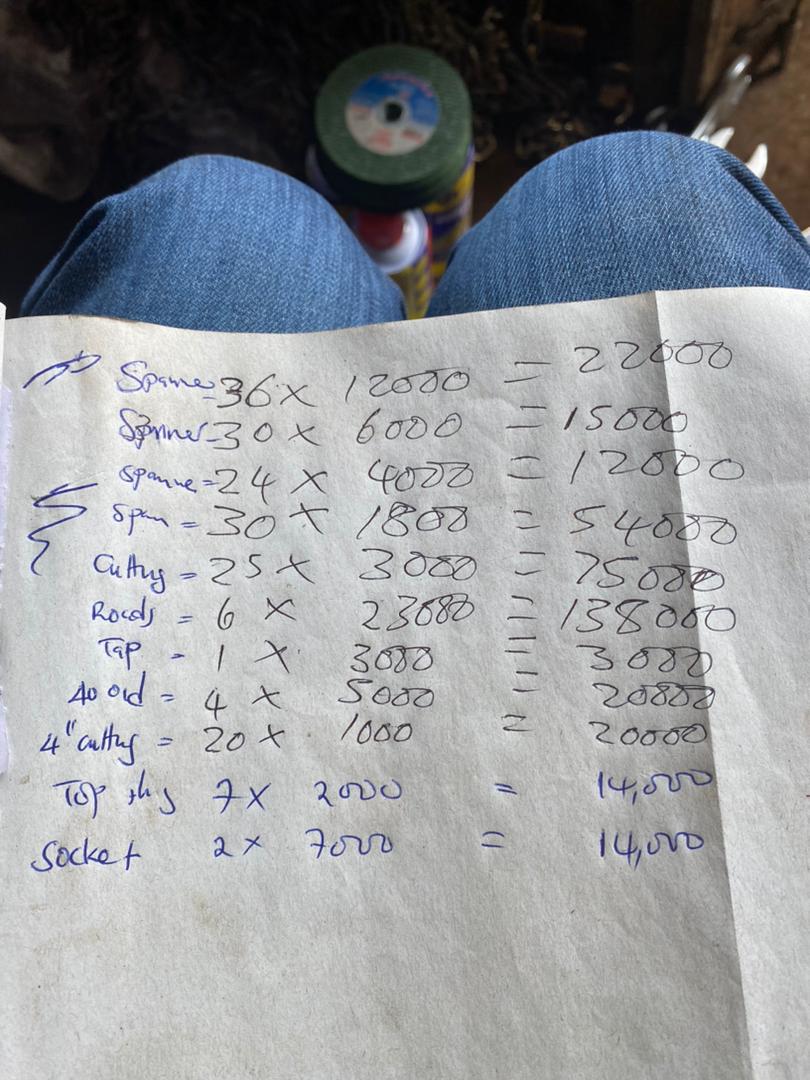 Spanne = 36 x 12000 = 22000
Spanner - 30 x 6000 = 15000
Spanne = 24 x 4000 = 12000
Span = 30 x 1800 = 54000
Cutting = 25 x 3000 = 75000
Roads = 6 x 23000 = 138000
Tap - 1 x 3000 = 3000
40 = 4 x 5000 = 20000
4" cutting = 20 x 1000 = 20000
7 x 2000 = 14,000
Socket 2 x 7000 = 14,000